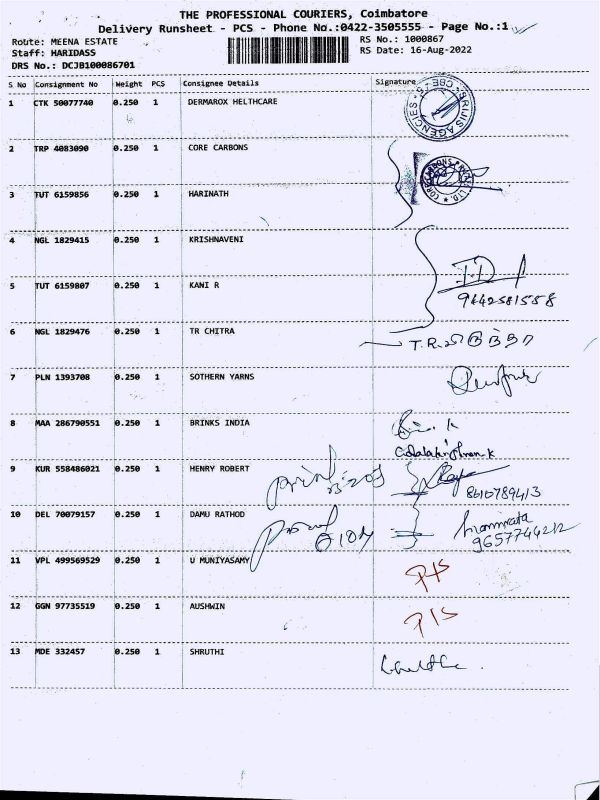 THE PROFESSIONAL COURIERS, Coimbatore
Delivery Runsheet - PCS - Phone No.:0422-3505555 - Page No.:1
Route: MEENA ESTATE RS No.: 1000867
Staff: HARIDASS RS Date: 16-Aug-2022
DRS No.: DCJB100086701
S No Consignment No Weight PCS Consignee Details Signature
1 CTK 50077740 0.250 1 DERMAROX HELTHCARE
SRIJIS AGENCIES CBE
2 TRP 4083090 0.250 1 CORE CARBONS
3 TUT 6159856 0.250 1 HARINATH
4 NGL 1829415 0.250 1 KRISHNAVENI
5 TUT 6159807 0.250 1 KANI R
9642581558
6 NGL 1829476 0.250 1 TR CHITRA
T.R.
7 PLN 1393708 0.250 1 SOTHERN YARNS
8 MAA 286790551 0.250 1 BRINKS INDIA
9 KUR 558486021 0.250 1 HENRY ROBERT
8610789413
10 DEL 70079157 0.250 1 DAMU RATHOD
9657744212
11 VPL 499569529 0.250 1 U MUNIYASAMY
P/S
12 GGN 97735519 0.250 1 AUSHWIN
P/S
13 MDE 332457 0.250 1 SHRUTHI